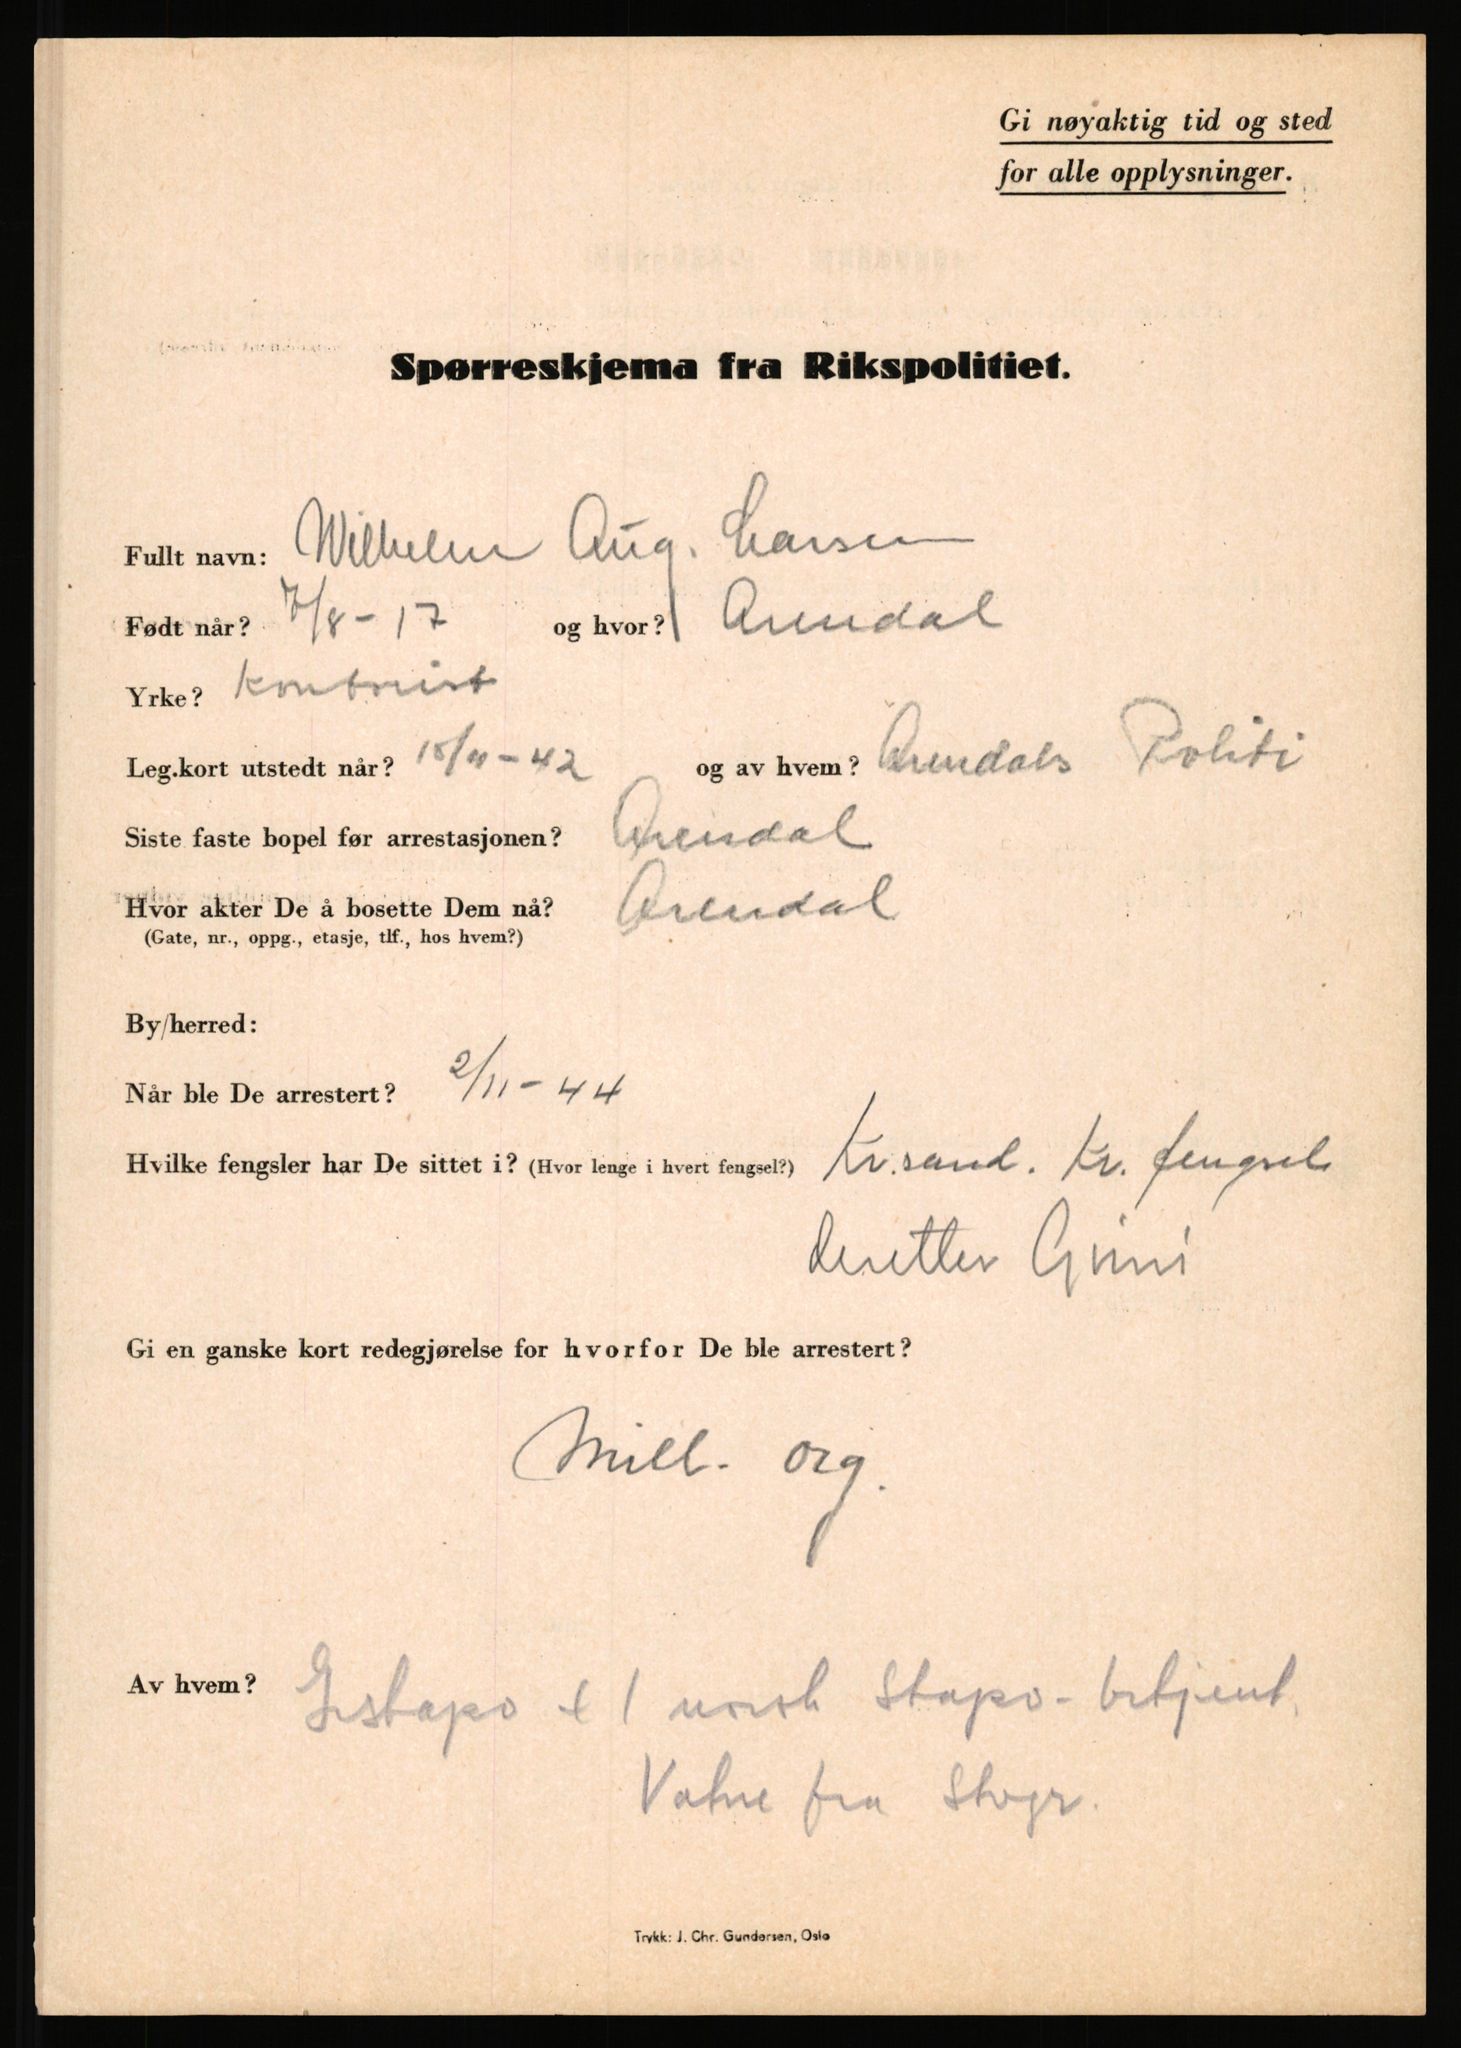 Gi nøyaktig tid og sted
for alle opplysninger.
Spørreskjema fra Rikspolitiet.
Fullt navn: Wilhelm Aug. Larsen
Født når? 7/8-17 og hvor? Arendal
Yrke? kontorist
Leg.kort utstedt når? -42 og av hvem? Arendals Politi
Siste faste bopel før arrestasjonen? Arendal
Hvor akter De å bosette Dem nå? Arendal
(Gate, nr., oppg., etasje, tlf., hos hvem?)
By/herred:
Når ble De arrestert? 2/11-44
Hvilke fengsler har De sittet i? (Hvor lenge i hvert fengsel?) Kr.sand. Kr. fengsel
deretter Grini
Gi en ganske kort redegjørelse for hvorfor De ble arrestert?
Mill. org.
Av hvem? Gestapo + 1 norsk Stapo-betjent,
Vatne fra
Trykk: J. Chr. Gundersen, Oslo